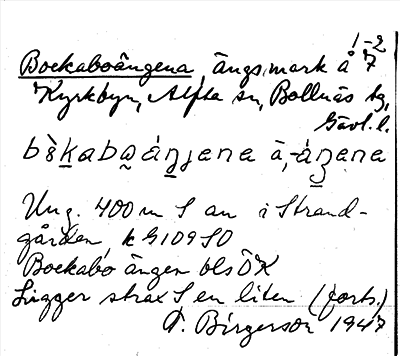 1-2
Bockaboängena, ängsmark å 7
Kyrkbyn, Alfta sn, Bollnäs tg,
Gävl. l.
Ung. 400 m S an i Strand-
gården, k G109 SO
Bockabo ängen bls ÖK
Ligger strax S en liten (forts.)
Birgerson 1947